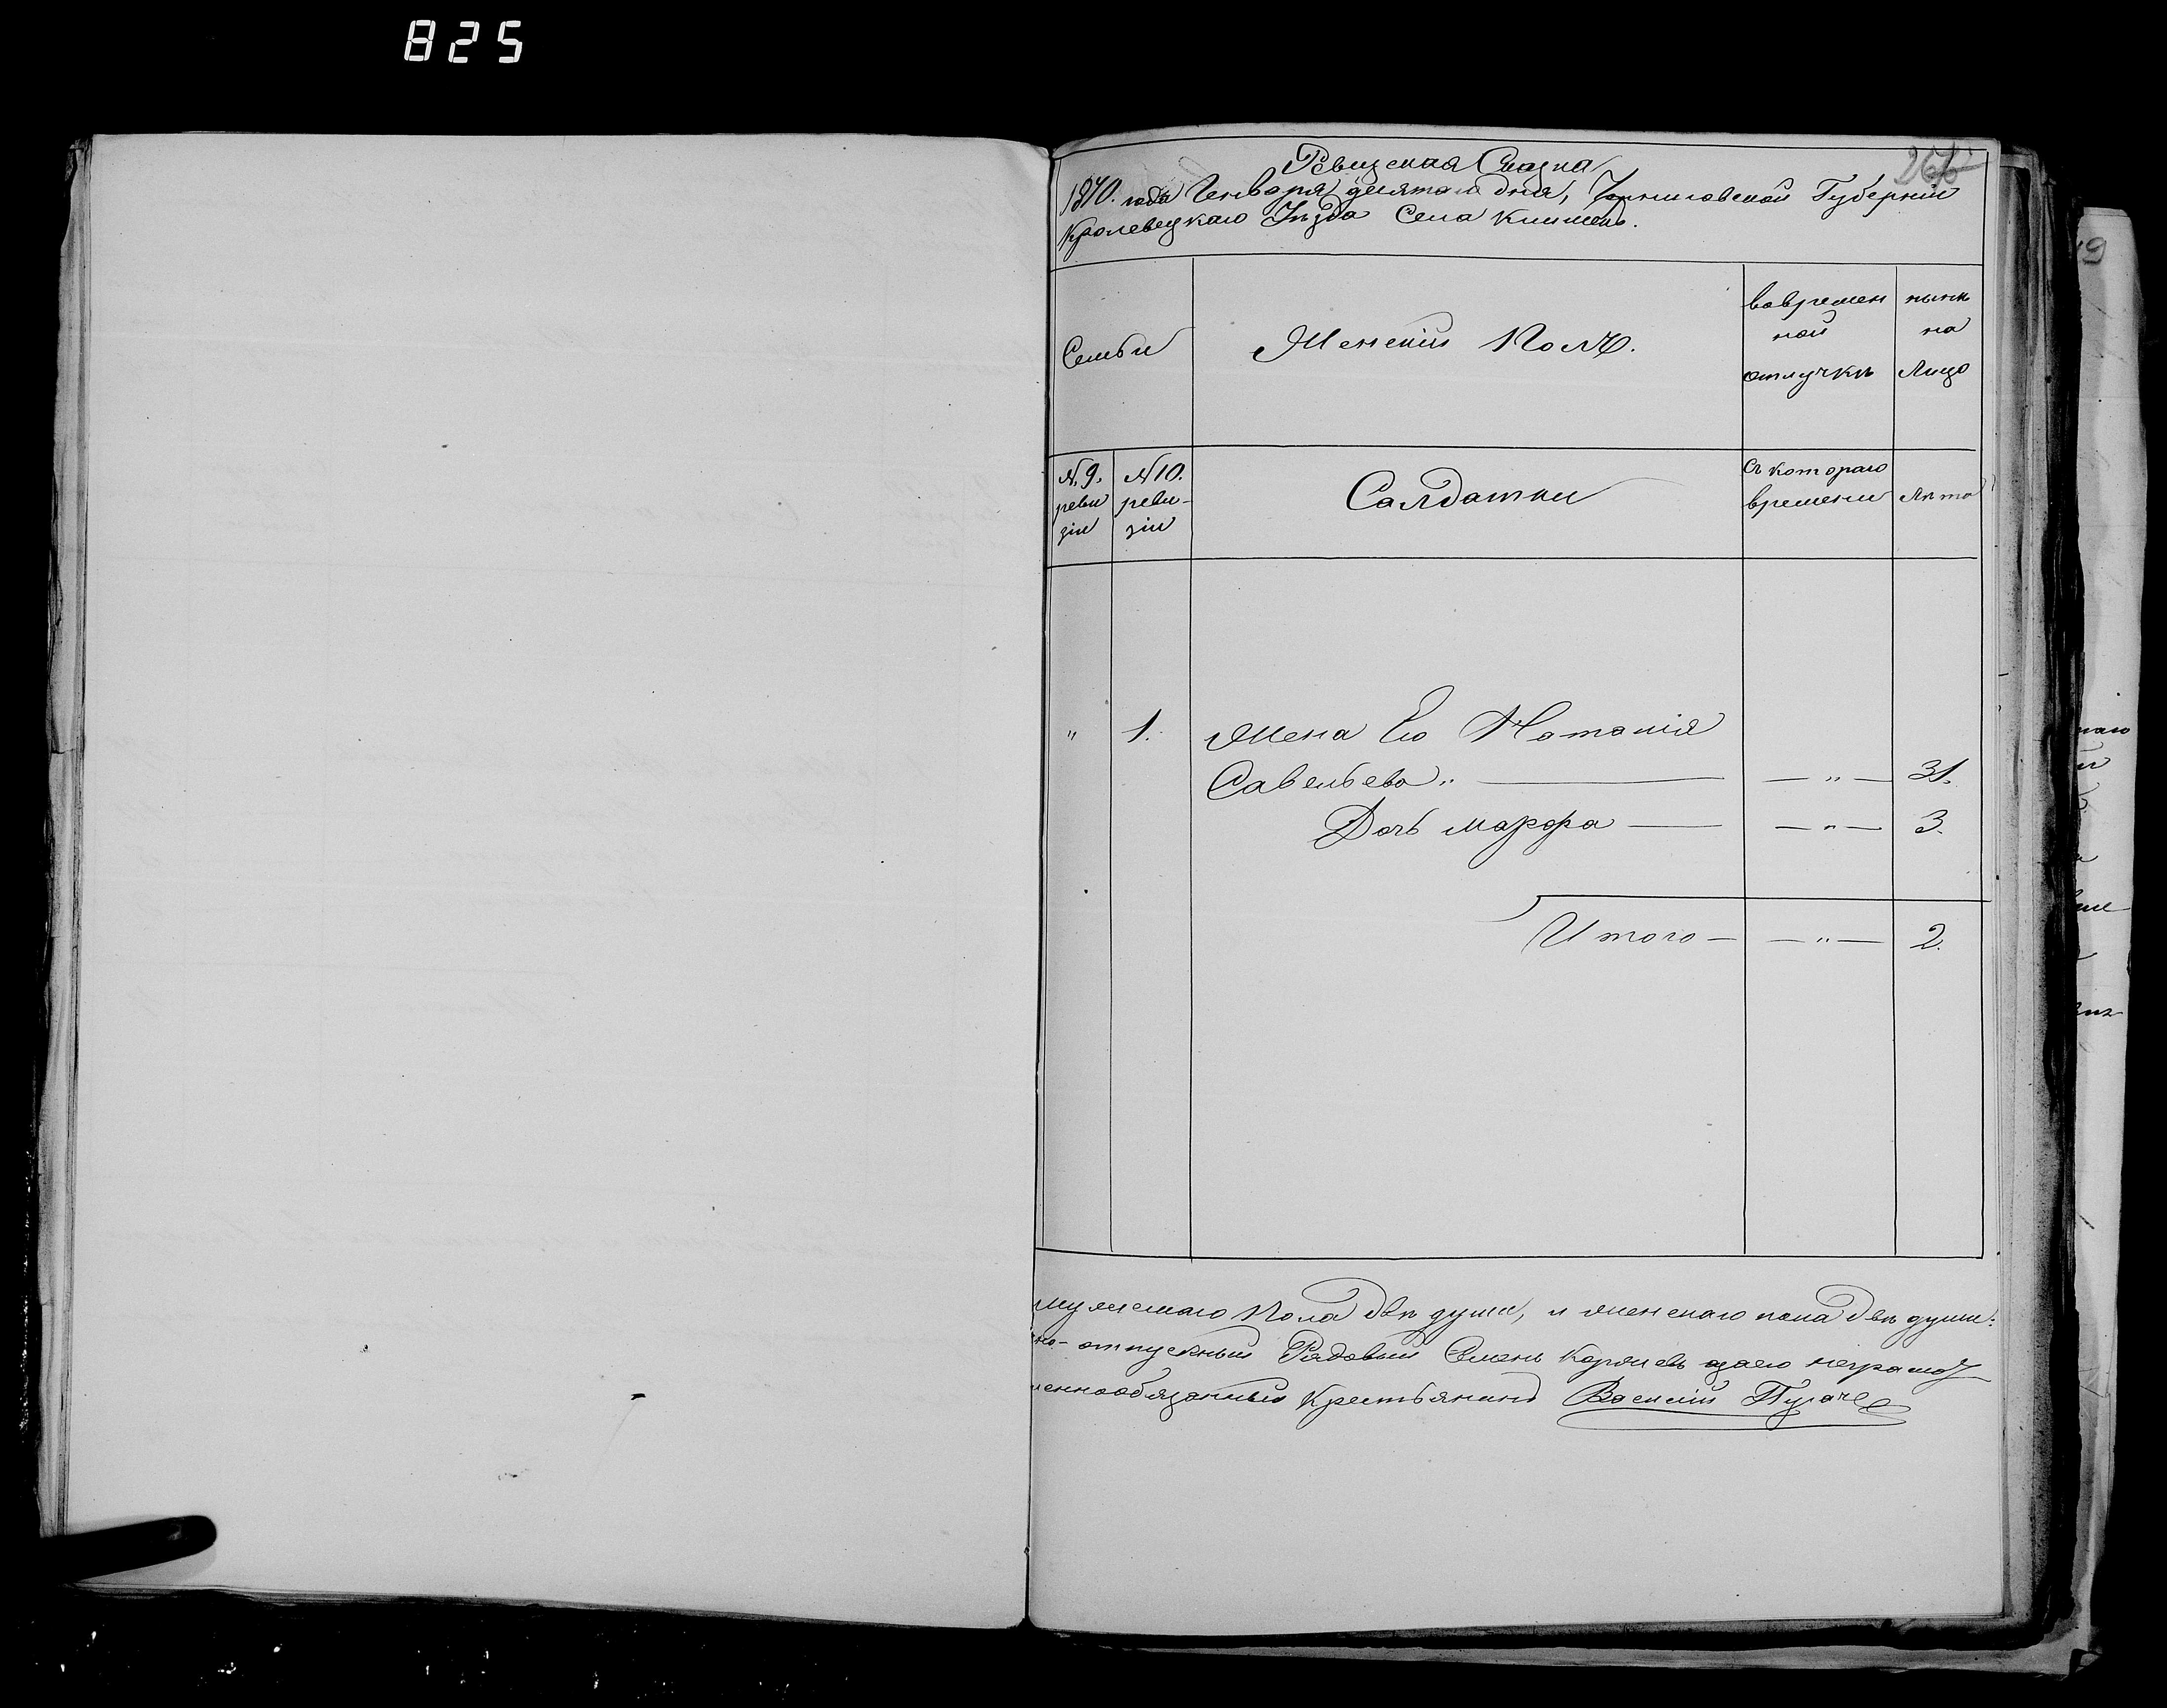 825
Ревизская Сказка
1870. года Генваря десятаго дня, Черниговской Губерніи
Кролевецкаго Уѣзда Села Клишекъ.
Семьи
Женскій Полъ.
вовремен
ной
отлучкѣ
нынѣ
на
Лицо
№ 9.
реви
зіи
№ 10.
реви-
зіи
Салдатки
съ котораго
времени
Лѣта
„ 1. Жена Его Наталія
Савельева „ — — „ — 31.
Дочь Марфа — — „ — 3.
Итого — — „ — 2.
мужескаго Пола двѣ души, и женскаго пола двѣ души:
отпускный Рядовый Семенъ негра
Крестьянинъ Василій